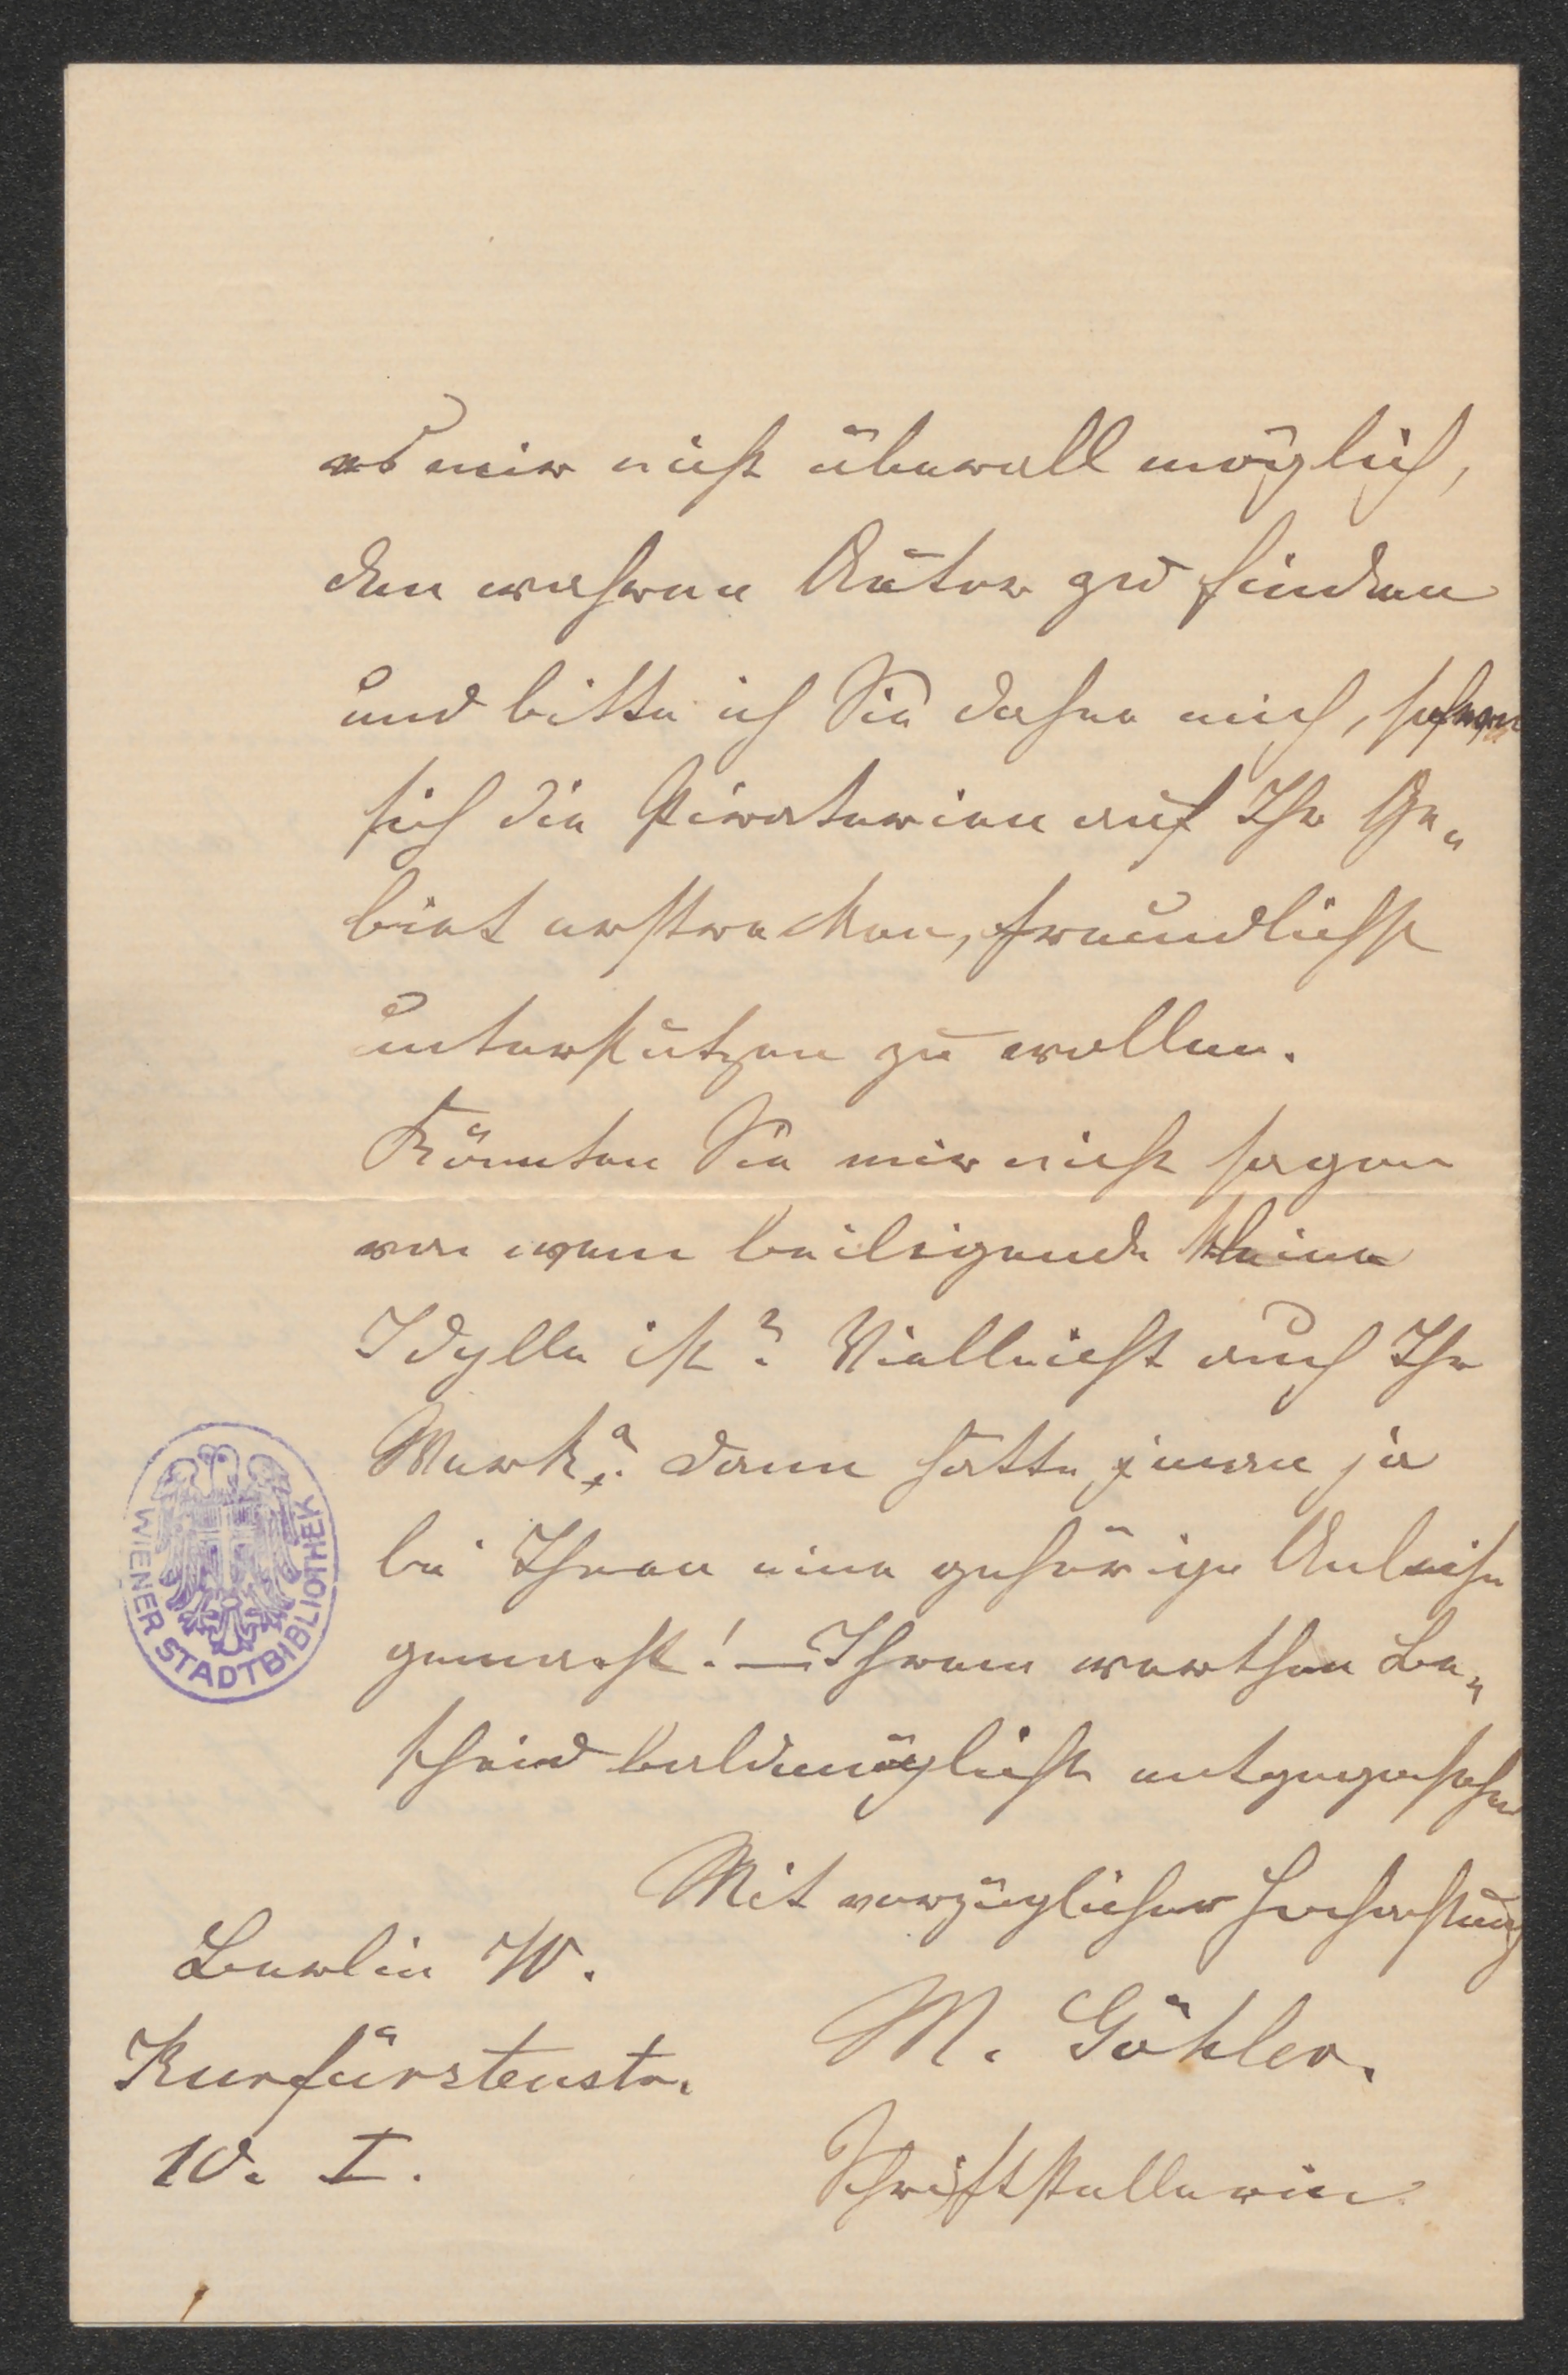 es mir nicht überall möglich,
den wahren Autor zu finden
und bitte ich Sie daher mich, sofern
sich die Piraterien auf Ihr Ge„
biet erstrecken, freundlichst
unterstützen zu wollen.
Könnten Sie mir nicht sagen
von wem beiligende kleine
Idylle ist? Vielleicht auch Ihr
Werk? dann hätte jener ja
bei Ihnen eine gehörige Anleihe
gemacht! — Ihrem werthen Be„
scheid baldmöglichst entgegensehen
Mit vorzüglicher Hochachtung
M. Göhler.
Schriftstellerin
Berlin W.
Kurfürstenstr.
10. I.
WIENER STADTBIBLIOTHEK